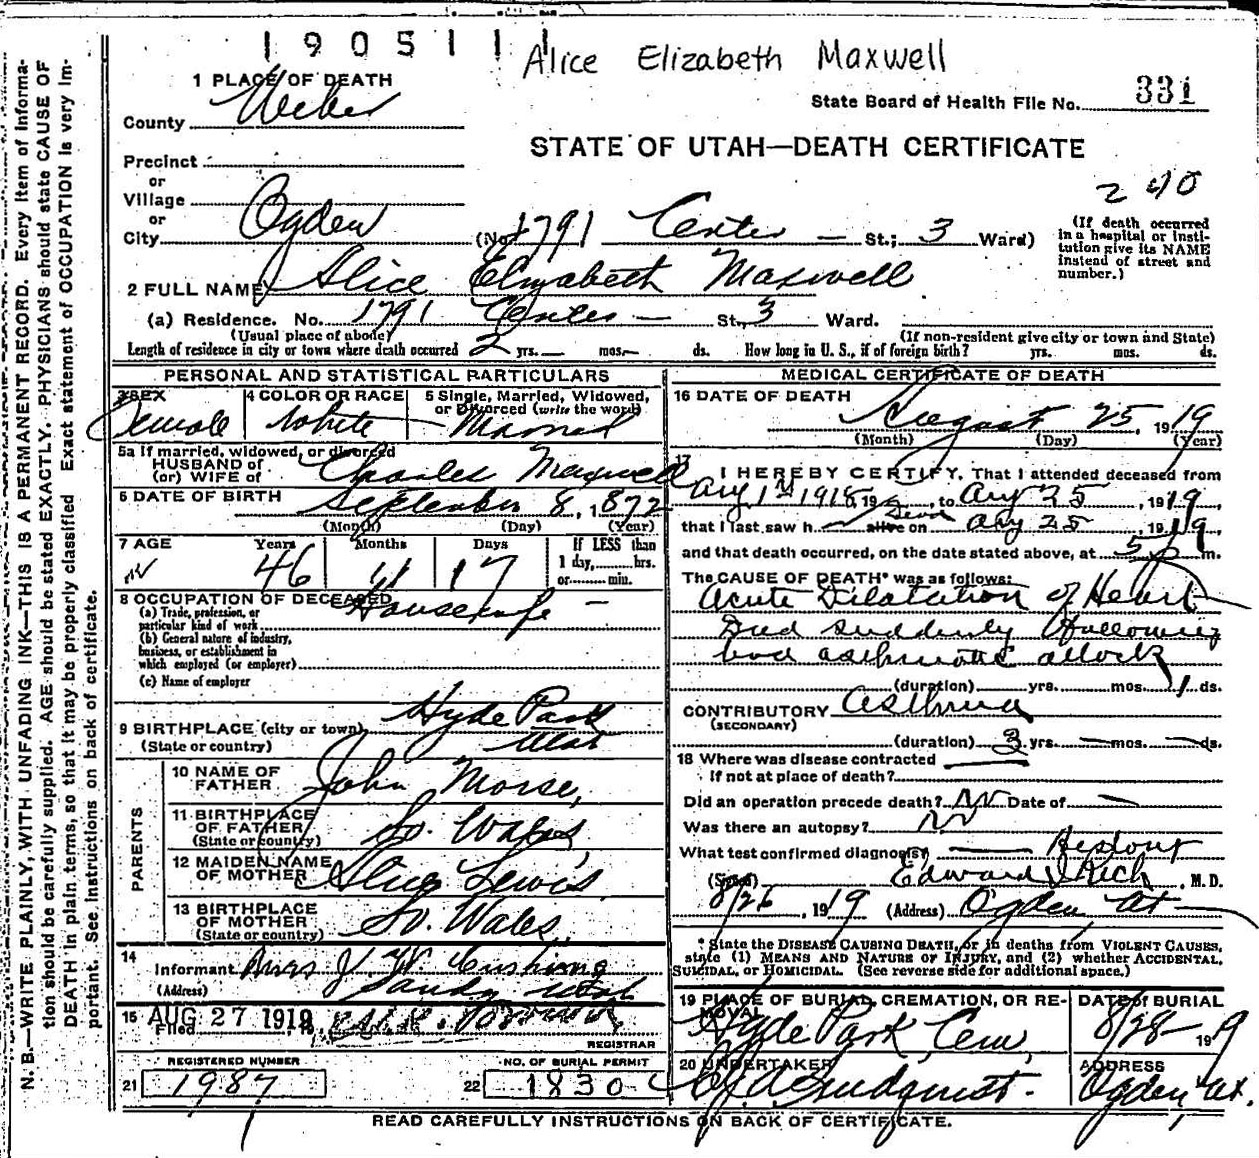 1905111
Alice Elizabeth Maxwell
State Board of Health File No. 331
1 PLACE OF DEATH
County Weber
STATE OF UTAH—DEATH CERTIFICATE
Precinct
or
Village
or
City Ogden (No. 1791 Center — St.; 3 Ward)
240
(If death occurred in a hospital or institution give its NAME instead of street and number.)
2 FULL NAME Alice Elizabeth Maxwell
(a) Residence. No. 1791 Center — St., 3 Ward.
(Usual place of abode) (If non-resident give city or town and State)
Length of residence in city or town where death occurred 2 yrs. — mos. — ds. How long in U. S., if of foreign birth? yrs. mos. ds.
PERSONAL AND STATISTICAL PARTICULARS
3 SEX Female
4 COLOR OR RACE White
5 Single, Married, Widowed, or Divorced (write the word) Married
5a If married, widowed, or divorced
HUSBAND of
(or) WIFE of Charles Maxwell
6 DATE OF BIRTH September 8, 1872
(Month) (Day) (Year)
7 AGE Years 46 Months 11 Days 17
If LESS than
1 day, hrs.
or min.
8 OCCUPATION OF DECEASED Housewife —
(a) Trade, profession, or
particular kind of work
(b) General nature of industry,
business, or establishment in
which employed (or employer)
(c) Name of employer
9 BIRTHPLACE (city or town) Hyde Park
(State or country) Utah
PARENTS
10 NAME OF FATHER John Morse,
11 BIRTHPLACE OF FATHER So. Wales,
(State or country)
12 MAIDEN NAME OF MOTHER Alice Lewis
13 BIRTHPLACE OF MOTHER So. Wales,
(State or country)
14
Informant Mrs J. W. Cushing
(Address) Sandy Utah
15 Filed AUG 27 1919
REGISTRAR
REGISTERED NUMBER
21 1987
NO. OF BURIAL PERMIT
22 1830
MEDICAL CERTIFICATE OF DEATH
16 DATE OF DEATH
August 25, 1919
(Month) (Day) (Year)
17
I HEREBY CERTIFY, That I attended deceased from
Aug 1st 1918, 19, to Aug 25, 1919,
that I last saw h alive on Aug 25, 1919,
and that death occurred, on the date stated above, at 5 P m.
The CAUSE OF DEATH* was as follows:
Acute Dilatation of Heart
Died suddenly following
bad asthmatic attack
(duration) yrs. mos. 1 ds.
CONTRIBUTORY Asthma
(SECONDARY)
(duration) 3 yrs. — mos. — ds.
18 Where was disease contracted
If not at place of death?
Did an operation precede death? No Date of —
Was there an autopsy? No
What test confirmed diagnosis? — History
(Signed) Edward I Rich, M.D.
8/26, 1919 (Address) Ogden, Ut
*State the DISEASE CAUSING DEATH, or in deaths from VIOLENT CAUSES,
state (1) MEANS AND NATURE OF INJURY, and (2) whether ACCIDENTAL,
SUICIDAL, or HOMICIDAL. (See reverse side for additional space.)
19 PLACE OF BURIAL, CREMATION, OR REMOVAL
Hyde Park Cem,
DATE of BURIAL
8/28— 1919
20 UNDERTAKER
Lindquist.
ADDRESS
Ogden, Ut.
READ CAREFULLY INSTRUCTIONS ON BACK OF CERTIFICATE.
N. B.—WRITE PLAINLY, WITH UNFADING INK—THIS IS A PERMANENT RECORD. Every item of information should be carefully supplied. AGE should be stated EXACTLY. PHYSICIANS should state CAUSE OF DEATH in plain terms, so that it may be properly classified Exact statement of OCCUPATION is very important. See instructions on back of certificate.